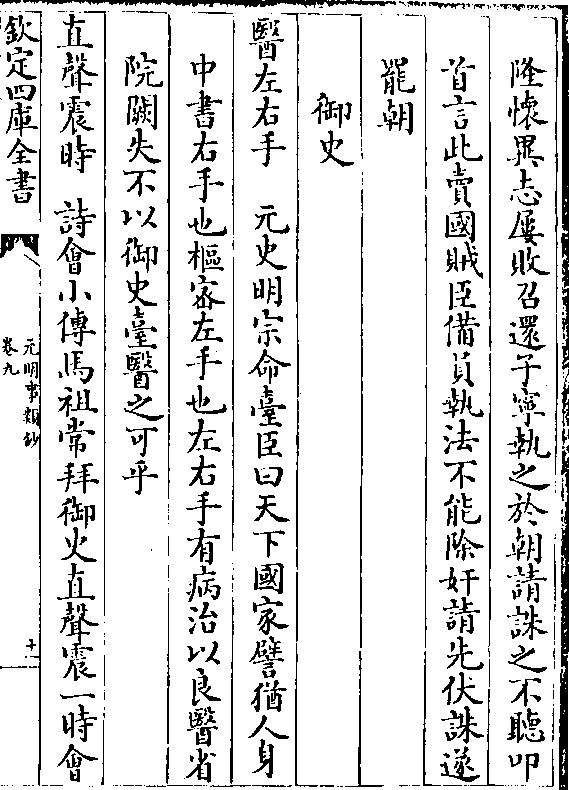 隆懷異志屢敗召還子寧執之於朝請誅之不聽叩
首言此賣國賊臣備員執法不能除奸請先伏誅遂
罷朝
御史
醫左右手　元史明宗命臺臣曰天下國家譬猶人身
中書右手也樞密左手也左右手有病治以良醫省
院闕失不以御史臺醫之可乎
直聲震時　詩會小傳馬祖常拜御史直聲震一時會
欽定四庫全書
元明事類鈔
卷九
十一